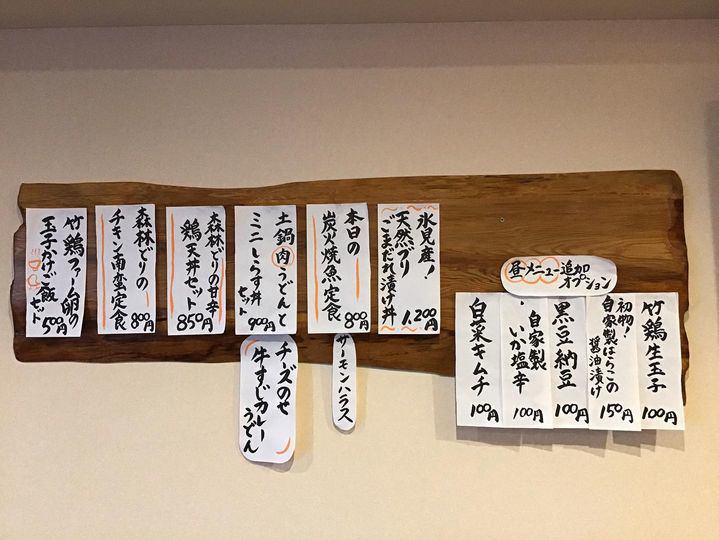 氷見産!
天然ブリ
ごまだれ漬け丼
1,200円
本日の
炭火焼魚定食
800円
サーモンハラス
土鍋肉うどんと
ミニしらす丼
セット
900円
チーズのせ
牛すじカレー
うどん
森林どりの甘辛
鶏天丼セット
850円
森林どりの
チキン南蛮定食
800円
竹鶏ファーム卵の
玉子かけご飯
セット
500円
昼メニュー追加
オプション
竹鶏生玉子
100円
初物!
自家製はらこの
醤油漬け
150円
黒豆納豆
100円
自家製
いか塩辛
100円
白菜キムチ
100円